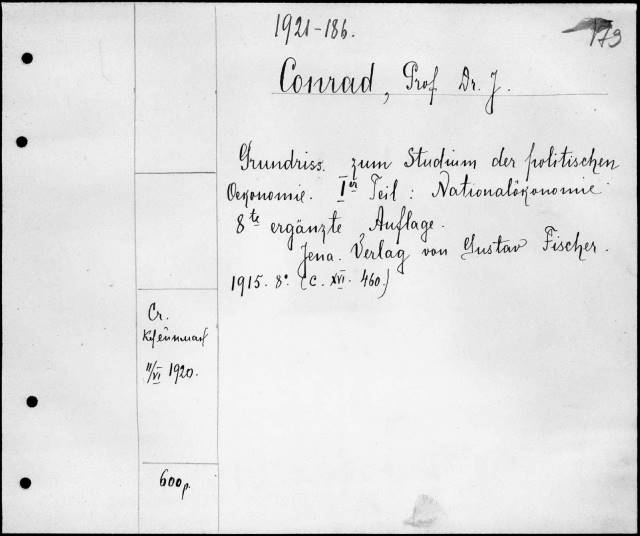 1921-186.
173
Conrad, Prof Dr. J.
Grundriss zum Studium der politischen
Oekonomie. Ier Teil: Nationalökonomie
8te ergänzte Auflage.
Jena. Verlag von Gustav Fischer.
1915. 8°. (С. XVI. 460.)
Ст.
11/VI 1920.
600р.